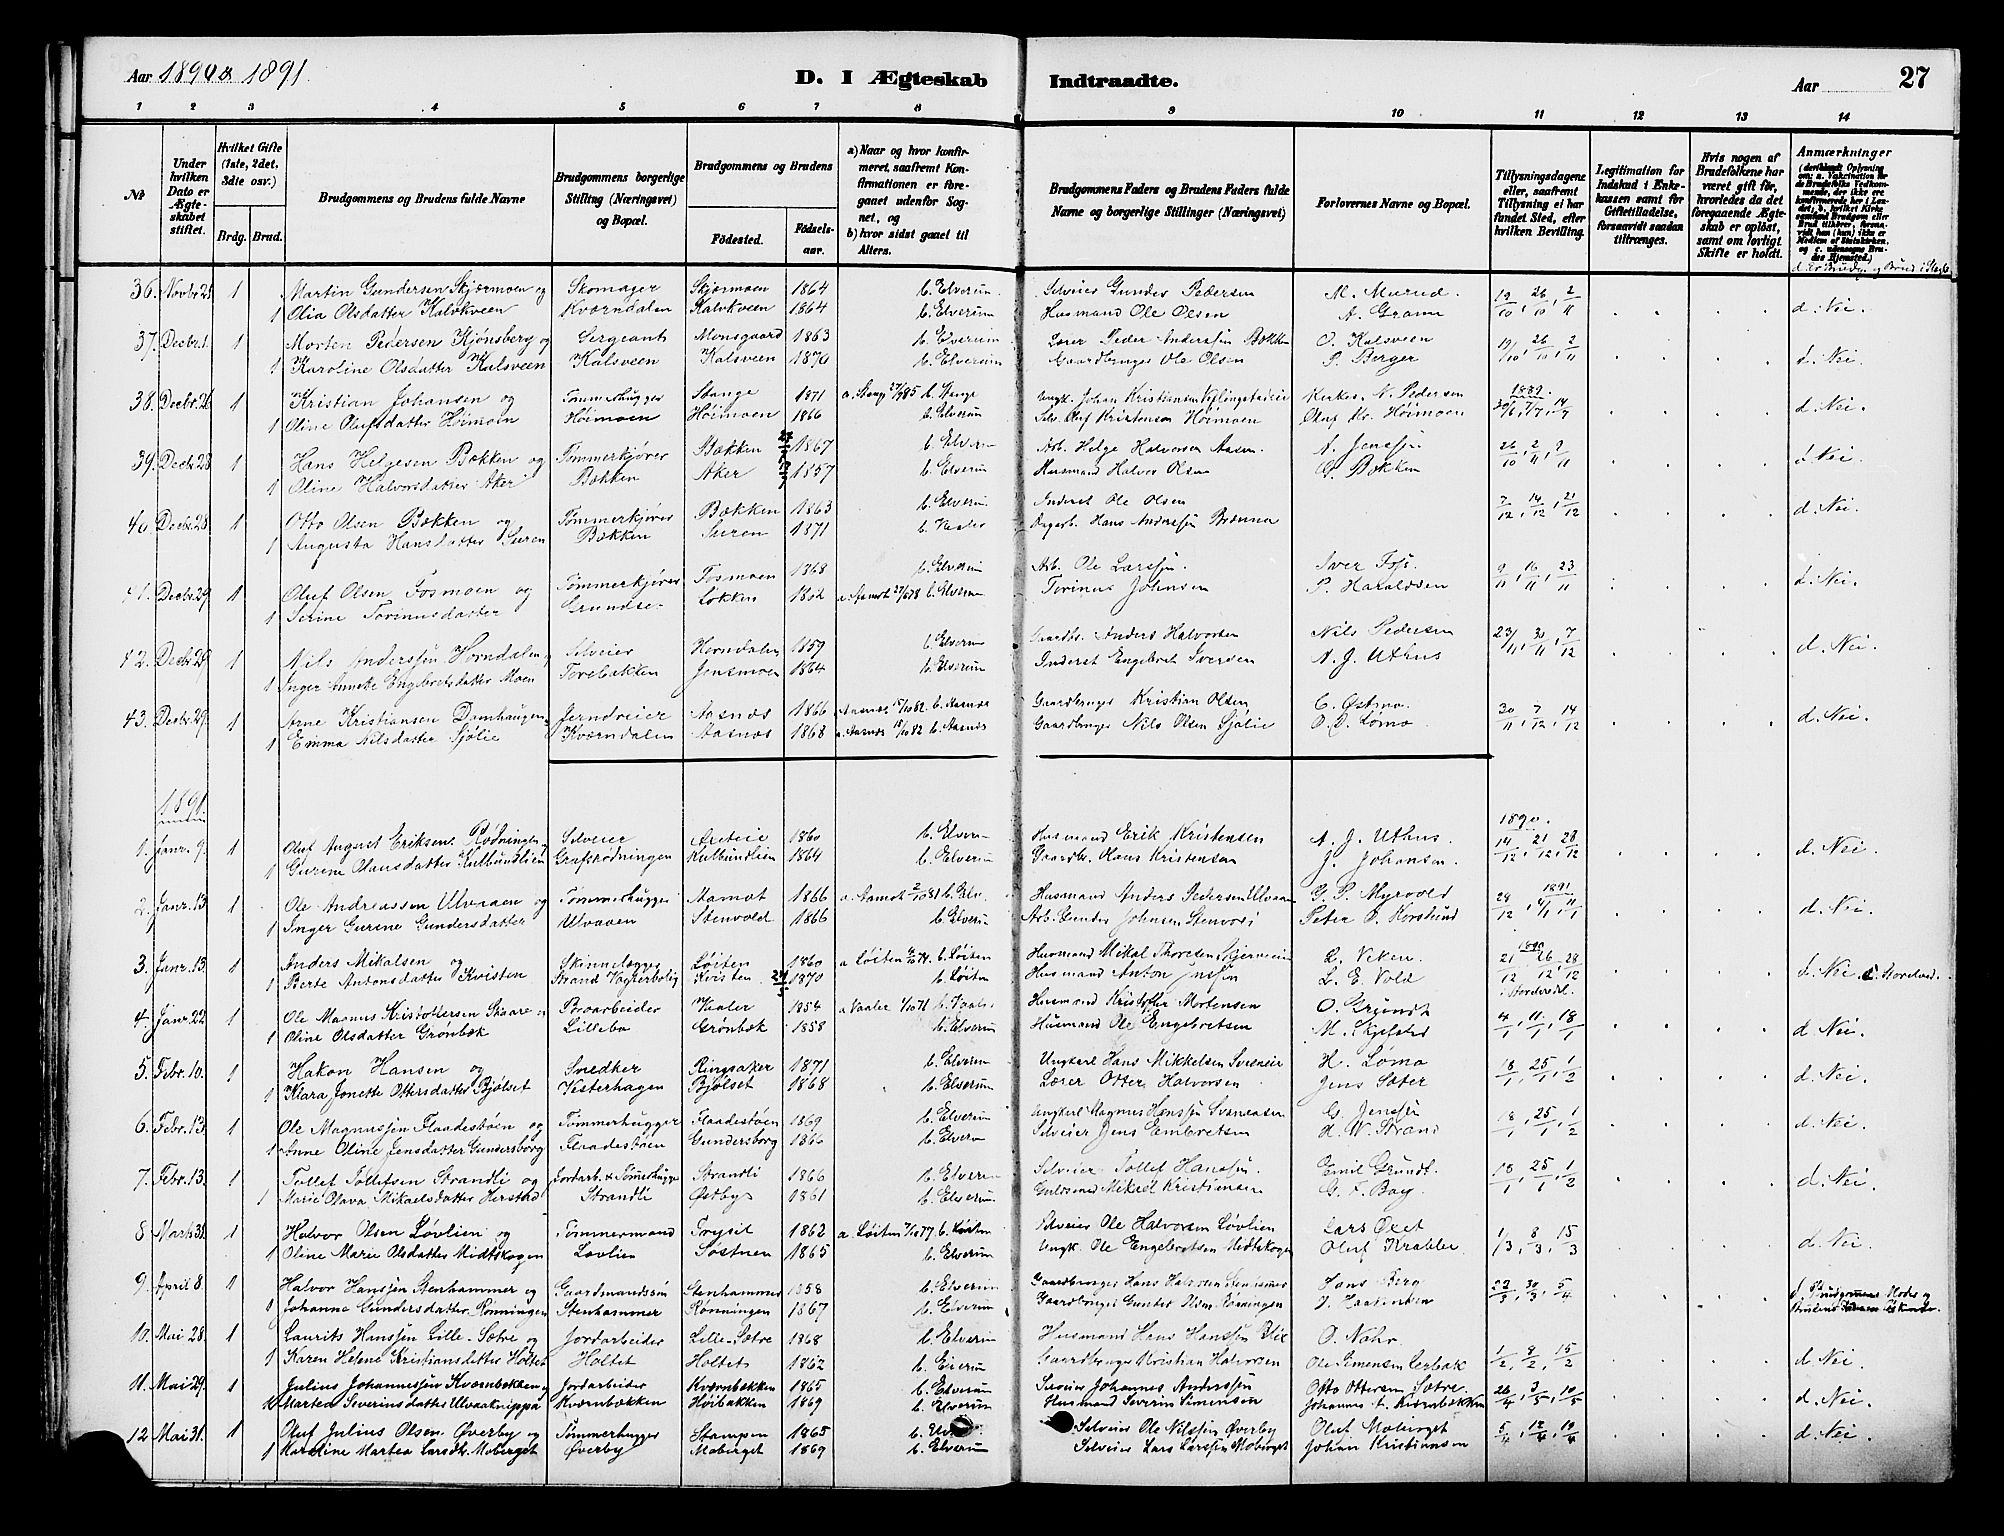 Aar 1890 & 1891.
D. I Ægteskab Indtraadte.
Aar
27
1 2 3 4 5 6 7 8 9 10 11 12 13 14
№
Under hvilken Dato er Ægteskabet stiftet.
Hvilket Gifte (1ste, 2det, 3die osv.)
Brdg. Brud.
Brudgommens og Brudens fulde Navne
Brudgommens borgerlige Stilling (Næringsvei) og Bopæl.
Brudgommens og Brudens
Fødested.
Fødselsaar.
a) Naar og hvor konfirmeret, saafremt Konfirmationen er foregaaet udenfor Sognet, og
b) hvor sidst gaaet til Alters.
Brudgommens Faders og Brudens Faders fulde Navne og borgerlige Stillinger (Næringsvei)
Forlovernes Navne og Bopæl.
Tillysningsdagene eller, saafremt Tillysning ei har fundet Sted, efter hvilken Bevilling.
Legitimation for Indskud i Enkekassen samt for Giftetilladelse, forsaavidt saadan tiltrænges.
Hvis nogen af Brudefolkene har været gift før, hvorledes da det foregaaende Ægteskab er opløst, samt om lovligt Skifte er holdt.
Anmærkninger
36. Novbr 21 1 Martin Gundersen Skjærmoen og Skomager Skjærmoen 1864 b. Elverum Selveier Gunder Pedersen M. Murud. 19/10, 26/10, 2/11 d. Nei.
1 Olia Olsdatter Kalvkveen Kværndalen Kalvkveen 1864 b. Elverum Husmand Ole Olsen A. Gram
37. Decbr. 1. 1 Morten Pedersen Kjønsberg og Sergeant Monsgaard 1863 b. Elverum Lærer Peder Anderssen Bækken O. Kalsveen 19/10, 26/10, 2/11 d. Nei.
1 Karoline Olsdatter Kalsveen Kalsveen Kalsveen 1870 b. Elverum Gaardbruger Ole Olsen P. Berger
38. Decbr. 26 1 Kristian Johansen og Tømmerhugger Stange 1871 a. Stange 27/9 85 b. Stange Ungk. Johan Kristiansen N. Pedersen 1889. d. Nei.
1 Oline Olufsdatter Høimoen Høimoen Høimoen 1866 b. Elverum Selv. Oluf Kristensen Høimoen Oluf Kr. Høimoen
39. Decbr. 28 1 Hans Helgesen Bækken og Tømmerkjører Bækken 1867 b. Elverum Arb. Helge Halvorsen Aasen A. Jenssen 26/10, 2/11, 9/11 d. Nei.
1 Oline Halvorsdatter Aker Bækken Aker 1857 b. Elverum Husmand Halvor Olsen O. Bækken
40. Decbr. 28. 1 Otto Olsen Bækken og Tømmerkjører Bækken 1863 b. Elverum Inderst Ole Olsen 7/12, 14/12, 21/12 d. Nei.
1 Augusta Hansdatter Suren Bækken Suren 1871 b. Vaaler Dagarb. Hans Anderssen Brænna
41. Decbr. 29 1 Oluf Olsen Fosmoen og Tømmerkjører Fosmoen 1868 b. Elverum Arb. Ole Larssen. Iver Fos. 9/11, 16/11, 23/11 d. Nei.
1 Serine Torinusdatter Grundset Løkken a. Aamot b. Elverum Torinus Johnsen P. Haraldsen
42. Decbr. 29 1 Nils Anderssen Horndalen Selveier Horndalen 1859 b. Elverum Gaardb. Anders Halvorsen Nils Pedersen 23/11, 30/11, 7/12 d. Nei.
1 Inger Annette Engebretsdatter Moen Torebakken Jensmoen 1864 b. Elverum Inderst Engebret Iversen A. J. Uthus
43. Decbr. 29. 1 Arne Kristiansen Damhaugen Jerndreier Aasnæs 1866 Aasnæs b. Aasnæs Gaardbruger Kristian Olsen C. Østmo. 30/11, 7/12, 14/12 d. Nei.
1 Emma Nilsdatter Sjølie Kværndalen Aasnæs 1868 a. Aasnæs 15/10 82 b. Aasnæs Gaardbruger Nils Olsen Sjølie O. O. Lømo
1891.
1890.
1. Janr. 9. 1 Oluf August Eriksen Rødningen Selveier 1860 b. Elverum Husmand Erik Kristensen A. J. Uthus. 14/12, 21/12, 28/12 d. Nei.
1 Gurine Olausdatter Kulbundlien Grafsrødningen Kulbundlien 1864 b. Elverum Gaardbr. Olaus Kristensen J. Johansen.
2. Janr. 13. 1 Ole Andreassen Ulvaaen og Tømmerhugger Aamot 1866 a. Aamot 2/10 81 b. Elv. Husmand Anders Pedersen Ulvaaen G. P. Myrvold 1891 d. Nei.
1 Inger Gurine Gundersdatter Ulvaaen Stenvold 1866 b. Elverum Arb. Gunder Johnsen Stenvold Peter O. Korslund
3. Janr. 13. 1 Anders Mikalsen og Løiten 1860 a Løiten b. Løiten Husmand Mikal Thoresen L. Viken. 1890 21/12, 26/12, 28/12 d. Nei
1 Berte Antonsdatter Kvisten Strand Vogterbolig Kvisten 1870 b. Løiten Husmand Anton Jenssen L. E. Vold
4. Janr. 22. 1 Ole Magnus Kristoffersen Skaare Braarbeider Vaaler 1854 a Vaaler b. Vaaler Husmand Kristoffer Mortensen O. Grundt 4/1, 11/1, 18/1 d. Nei.
1 Oline Olsdatter Grønbæk Lillebo Grønbæk 1858 b. Elverum Husmand Ole Engebretsen M. Skjefstad
5. Febr. 10. 1 Hakon Hansen og Snedker Ringsaker 1871 b. Elverum Ungkarl Hans Mikkelsen H. Lømo 18/1, 25/1, 1/2 d. Nei.
1 Klara Jonette Ottersdatter Bjølset Vesterhagen Bjølset 1868 b. Elverum Lærer Otter Halvorsen. Jens Sæter.
6. Febr. 13. 1 Ole Magnussen Flaadestøen og Tømmerhugger Flaadestøen 1869 b. Elverum Ungkarl Magnus Hanssen Svenaasen G. Jenssen 18/1, 25/1, 1/2 d. Nei.
1 Anne Oline Jensdatter Gundersborg Flaadestøen Gundersborg 1866 b. Elverum Selveier Jens Embretsen W. Strand
7. Febr. 13. 1 Tollef Tollefsen Strandli og Jordarb. & Tømerhugger Strandli 1866 b. Elverum Selveier Tollef Hanssen. Emil Grundt. 18/1, 25/1, 1/2 d. Nei.
1 Marie Olava Mikaelsdatter Herstad Strandli Østby 1861 b. Elverum Guldsmed Mikael Kristiansen G. F. Bay.
8 Marts 31. 1 Halvor Olsen Løvlien og Tømmermand Trysil 1862 a. Løiten 7/10 77 b. Løiten Selveier Ole Halvorsen Løvlien Lars Oset 1/3, 8/3, 15/3 d. Nei.
1 Oline Marie Olsdatter Midtskogen Løvlien 1865 b. Elverum Ungk. Ole Engebretsen Midtskogen Oluf Krabbe.
9. April 8. 1 Halvor Hanssen Stenhammer og Gaardmandssøn Stenhammer 1858 b. Elverum Gaardbruger Hans Halvorsen Stenhammer Hans Berg 22/3, 30/3, 5/4 d. Brudgommens Moder og
1 Johanne Gundersdatter Rønningen Stenhammer Rønningen 1867 b. Elverum Gaardbruger Gunder Olsen Rønningen
10. Mai 28. 1 Laurits Hanssen Lille-Sætre og Jordarbeider Lille-Sætre 1868 b. Elverum Husmand Hans Hanssen O. Nohr. 1/2, 8/2, 15/2 d. Nei.
1 Karen Helene Kristiansdatter Holtet Holtet Holtet 1862 b. Elverum Gaardbruger Kristian Halvorsen Ole Simensen
11. Mai 29. 1 Julius Johannessen Kværnbækken Jordarbeider Kværnbækken 1865 b. Elverum Selveier Johannes Anderssen Otto Ottersen Sætre. 26/4, 3/5, 10/5 d. Nei.
1 Martea Severinsdatter Ulvaaknippa Kværnbækken Høibakken 1869 b. Elverum Husmand Severin Simensen Johannes A. Kværnbækken
12 Mai 31. 1 Oluf Julius Olsen Øverby og Tømmerhugger Stampen 1865 b. Elverum Selveier Ole Nilssen Øverby Oluf Moberget 5/4, 12/4, 19/4 d. Nei.
1 Karoline Martea Larsdtr. Moberget Øverby Moberget 1869 b. Elverum Selveier Lars Larssen Moberget Johan Kristiansen